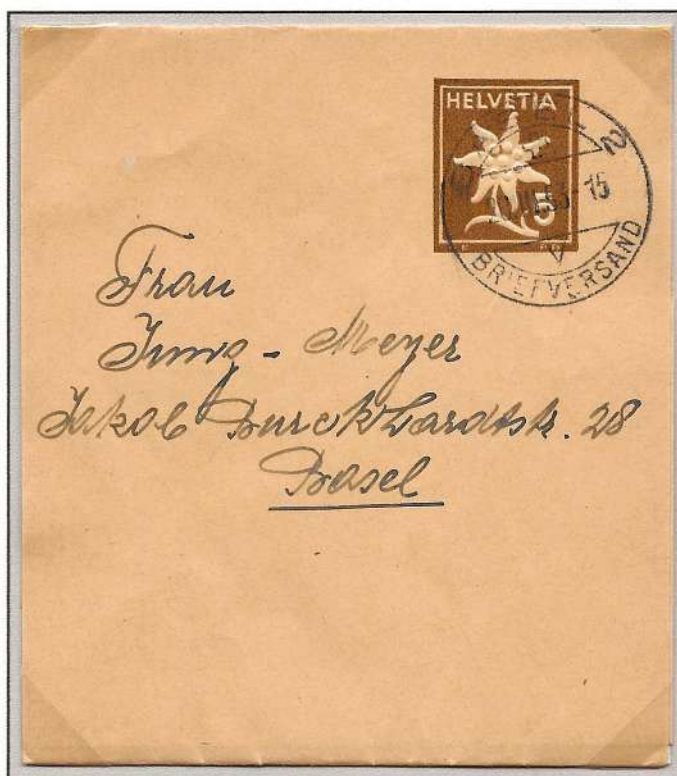 HELVETIA
5
BRIEFVERSAND
Frau
Meyer
Jakob Burckhardtstr. 28
Basel